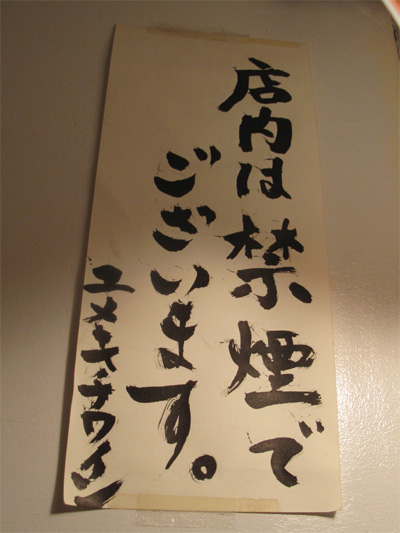 店内は禁煙で
ございます。
ユメキチワイン